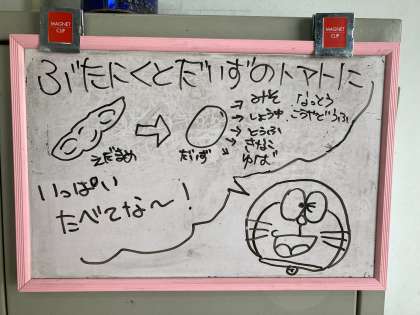 MAGNET CLIP
MAGNET CLIP
ぶたにくとだいずのトマトに
えだまめ
だいず
→ みそ なっとう
→ しょうゆ こうやどうふ
→ とうふ
→ きなこ
ゆば
いっぱい
たべてな〜!